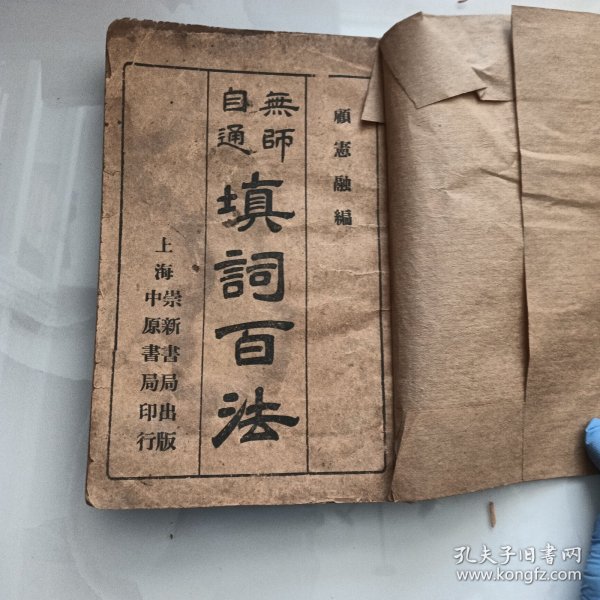 顧憲融編
無師
自通
填詞百法
上海崇新書局出版
中原書局印行
孔夫子旧书网
www.kongfz.com